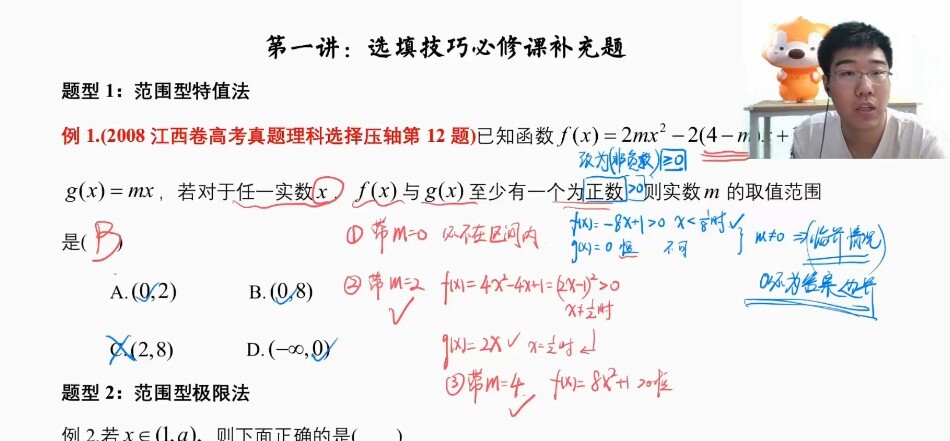 第一讲：选填技巧必修课补充题
题型 1：范围型特值法
例 1.(2008 江西卷高考真题理科选择压轴第 12 题)已知函数 f(x) = 2mx² − 2(4 − m)x +
改为(非负数) ≥0
g(x) = mx，若对于任一实数 x，f(x) 与 g(x) 至少有一个为正数 >0 则实数 m 的取值范围
是( B )
① 带 m=0 必不在区间内
f(x)=-8x+1>0 x<1/8时 ✓
g(x)=0 恒 不可
m≠0 ⇒ (临界情况)
0必不为答案
A.(0,2) B.(0,8)
② 带 m=2 f(x)=4x²-4x+1=(2x-1)²>0
x≠1/2时
✓
C.(2,8) D.(−∞,0)
g(x)=2x ✓ x=1/2时
③ 带 m=4 f(x)=8x²+1>0恒
✓
题型 2：范围型极限法
例 2.若 x∈(1,a)，则下面正确的是( )